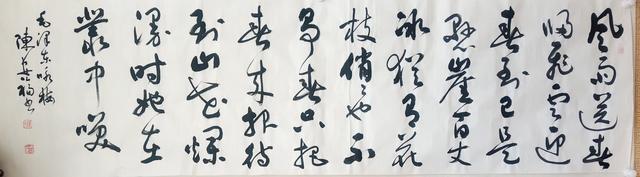 风雨送春
归飞雪迎
春到已是
悬崖百丈
冰犹有花
枝俏々也不
争春只把
春来报待
到山花烂
漫时她在
叢中咲
毛泽东咏梅
陳